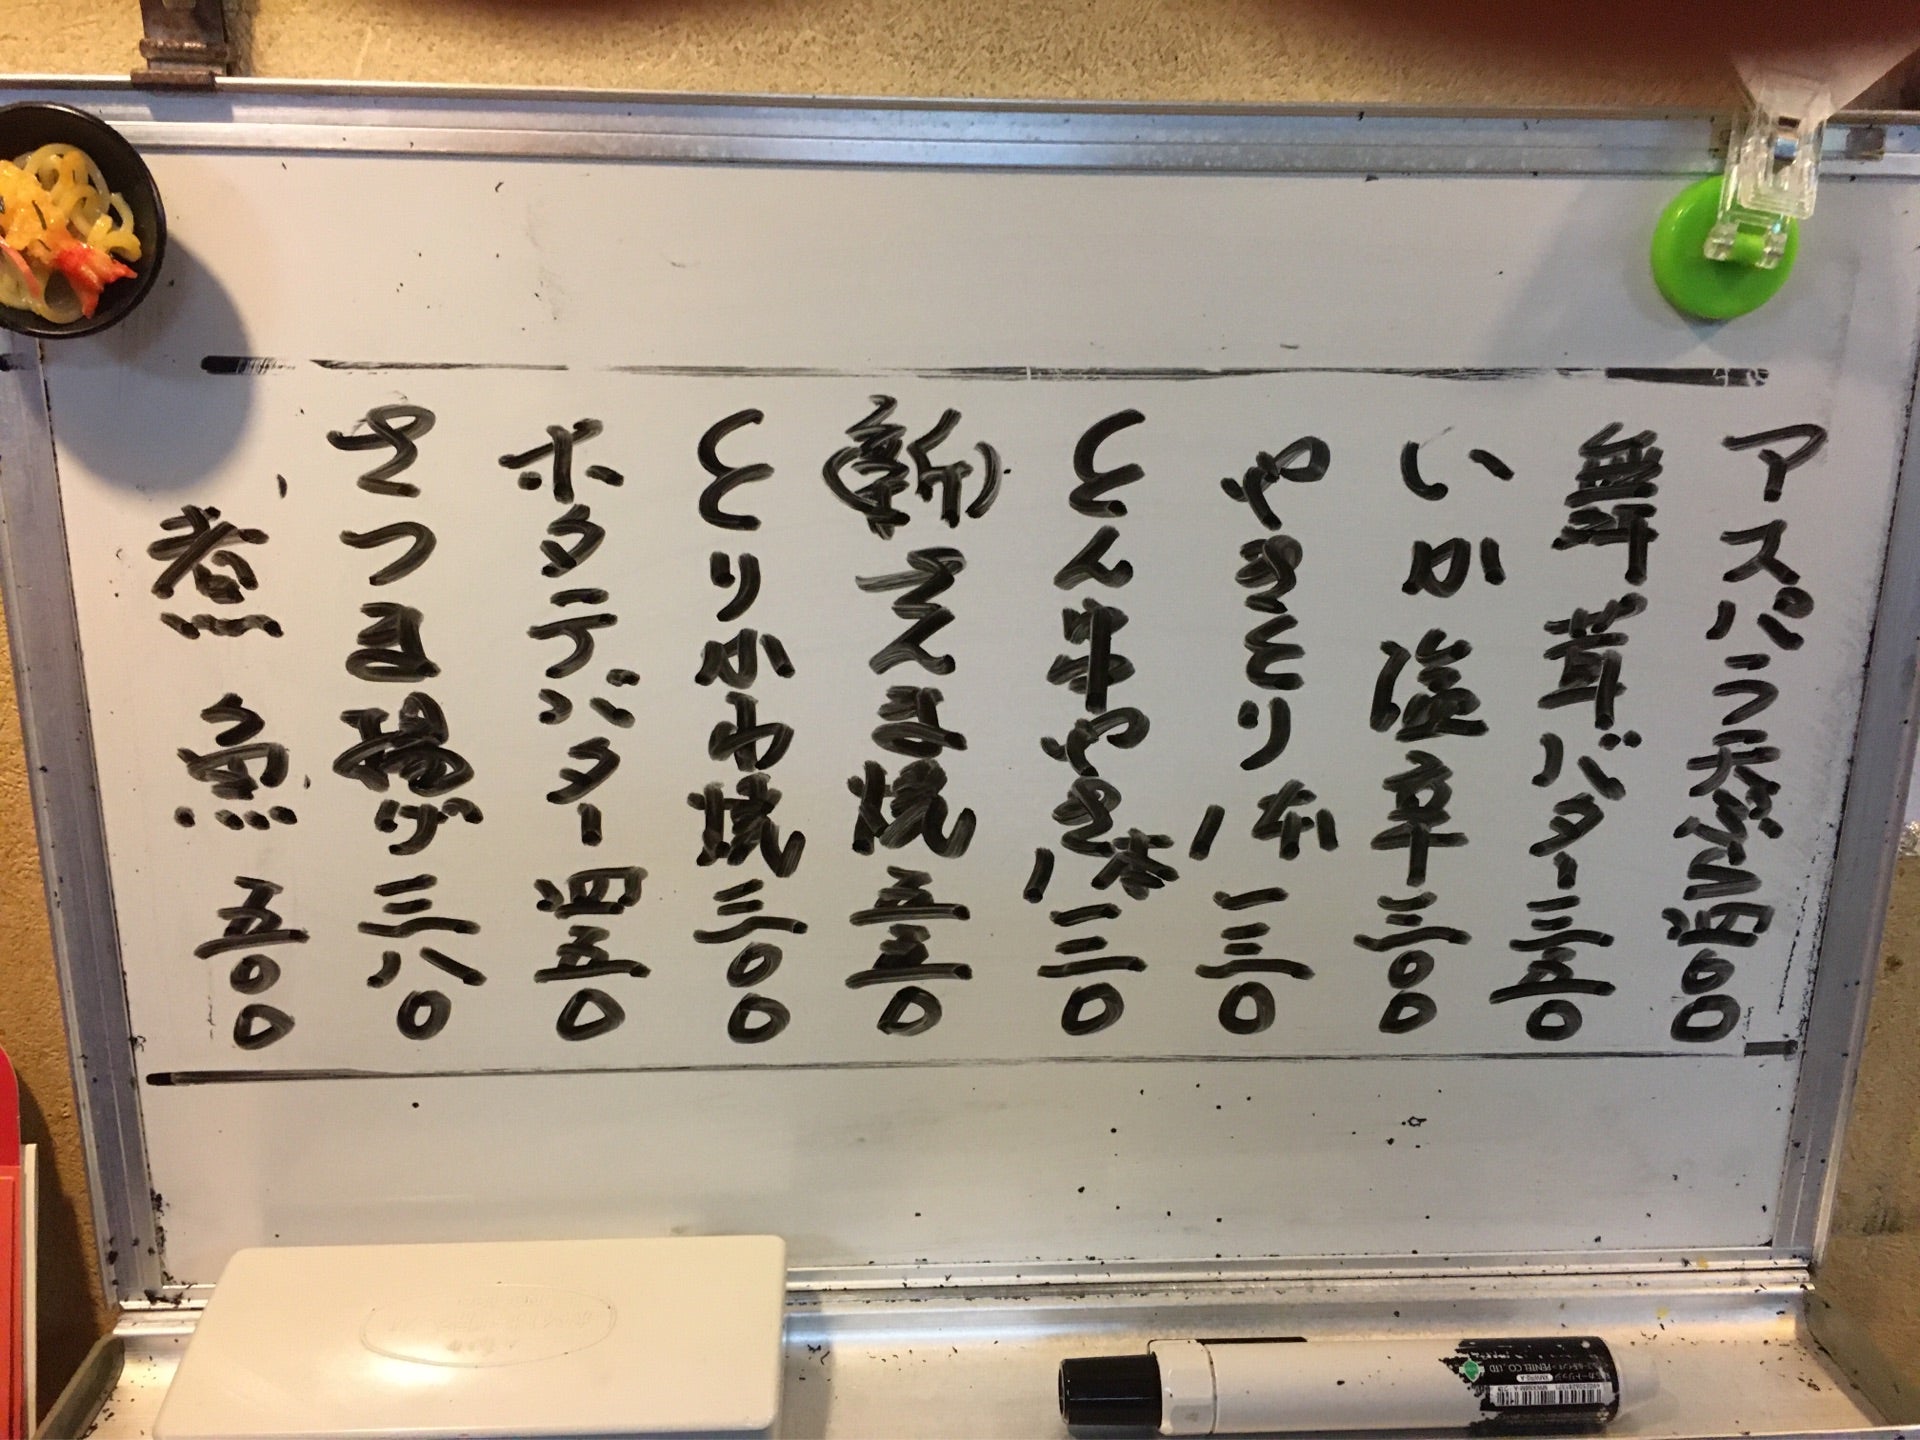 アスパラ天ぷら四〇〇
舞茸バター三五〇
いか塩辛三〇〇
やきとり1本一三〇
とん串やき1本一三〇
(新)さんま焼五五〇
とりかわ焼三〇〇
ホタテバター四五〇
さつま揚げ三八〇
煮魚五〇〇
PENTEL CO., LTD